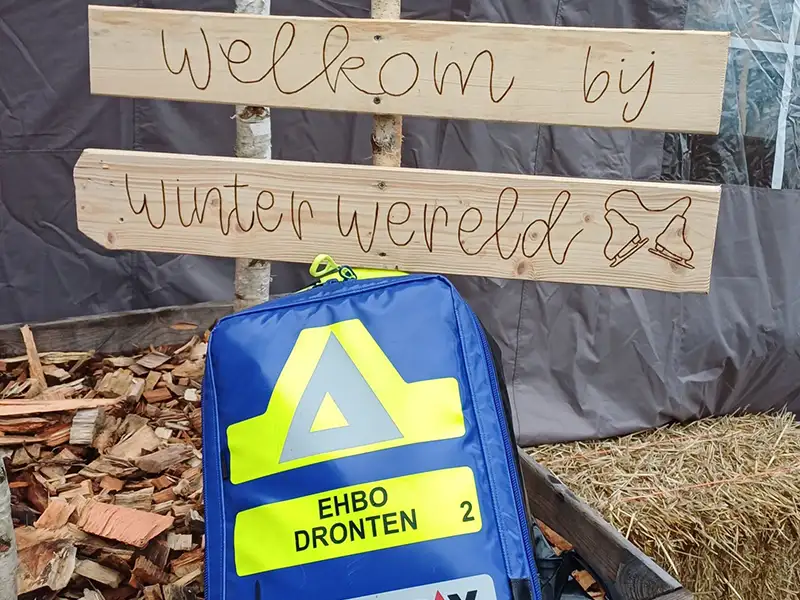 welkom bij
winter wereld
EHBO
DRONTEN 2